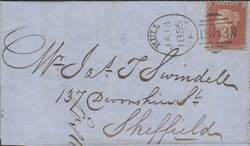 HULL
1855
Mr. Jas. T Swindell
137 Devonshire St
Sheffield